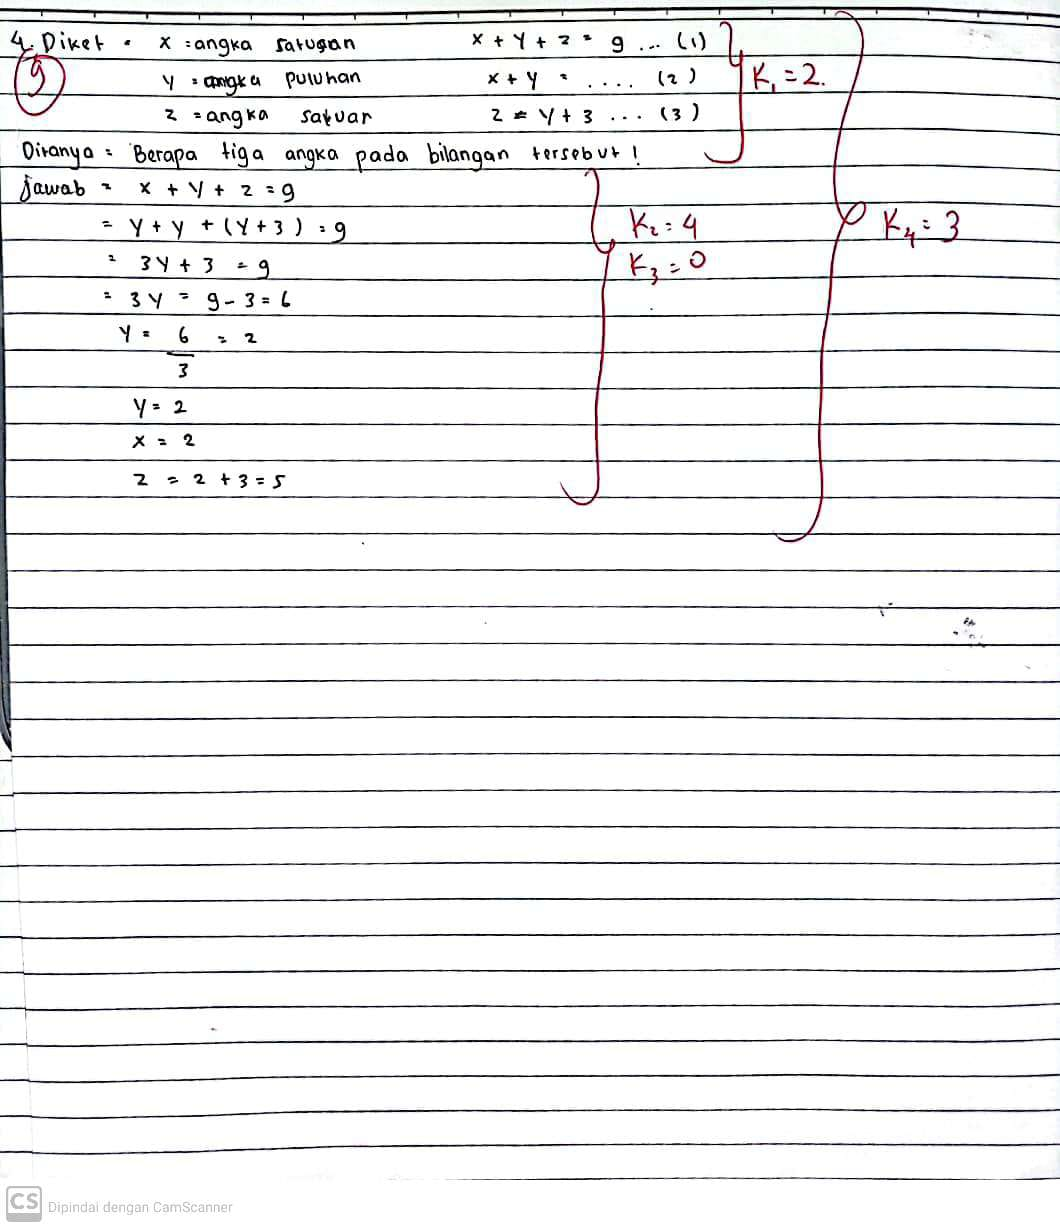 4. Diket = x = angka ratusan x + y + z = 9 ... (1)
9 y = angka puluhan x + y = .... (2) K₁ = 2.
z = angka satuan z = y + 3 ... (3)
Ditanya = Berapa tiga angka pada bilangan tersebut !
jawab = x + y + z = 9
= y + y + (y + 3) = 9 K₂ = 4 K₄ = 3
= 3y + 3 = 9 K₃ = 0
= 3y = 9 - 3 = 6
y = 6/3 = 2
y = 2
x = 2
z = 2 + 3 = 5
CS Dipindai dengan CamScanner